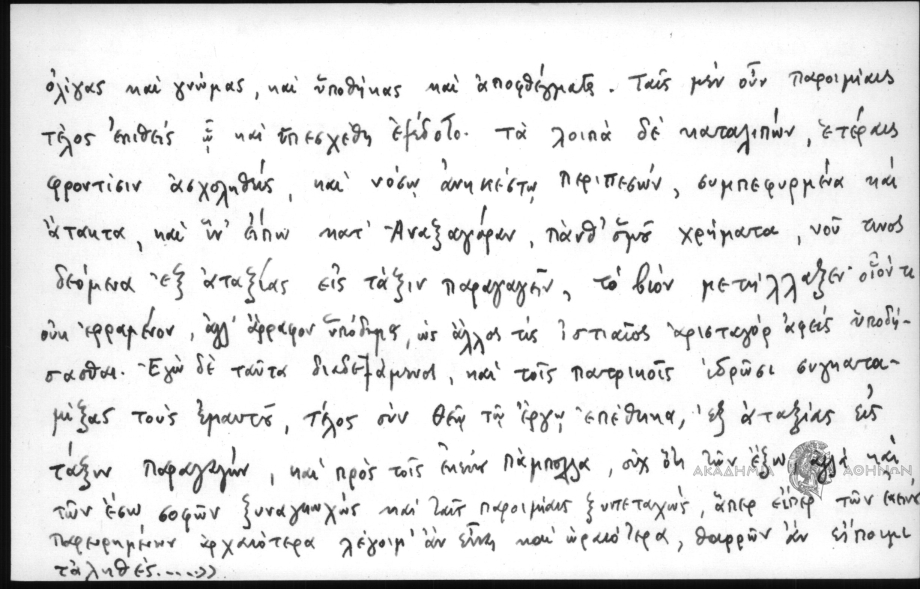 ὀλίγας καὶ γνώμας, καὶ ὑποθήκας καὶ ἀποφθέγματα. Ταῖς μὲν οὖν παροιμίαις
τέλος ἐπιθείς ᾗ καὶ ὑπεσχέθη ἐξέδοτο. τὰ λοιπὰ δὲ καταλιπών, ἑτέραις
φροντίσιν ἀσχοληθείς, καὶ νόσῳ ἀνηκέστῳ περιπεσών, συμπεφυρμένα καὶ
ἄτακτα, καὶ ἵν' εἴπω κατ' Ἀναξαγόραν, πάνθ' ὁμοῦ χρήματα, νοῦ τινος
δεόμενα ἐξ ἀταξίας εἰς τάξιν παραγαγεῖν, τὸ βίον μετήλλαξεν· οἷόν τι
οὐκ ἐρραμένον, ἀλλ' ἄρραφον ὑπόδημα, ὡς ἄλλος τις Ἱστιαῖος ἀρισταγόρ ἀφείς ὑποδή-
σασθαι. Ἐγὼ δὲ ταῦτα διαδεξάμενος, καὶ τοῖς πατρικοῖς ἱδρῶσι συγκατα-
μίξας τοὺς ἐμαυτοῦ, τέλος σὺν θεῷ τῷ ἔργῳ ἐπέθηκα, ἐξ ἀταξίας εἰς
τάξιν παραγαγών, καὶ πρὸς τοῖς ἐκείνου πάμπολλα, οὐχ ὅτι τῶν ἔξω, ἀλλὰ καὶ
τῶν ἔσω σοφῶν ξυναγηοχώς καὶ ταῖς παροιμίαις ξυντεταχώς, ἅπερ εἴπερ τῶν ἐκείνῳ
παρευρημένων ἀρχαιότερα λέγοιμ' ἂν εἶναι καὶ ὡραιότερα, θαρρῶν ἂν εἴποιμι
τἀληθές.....»
ΑΚΑΔΗΜΙΑ ΑΘΗΝΩΝ